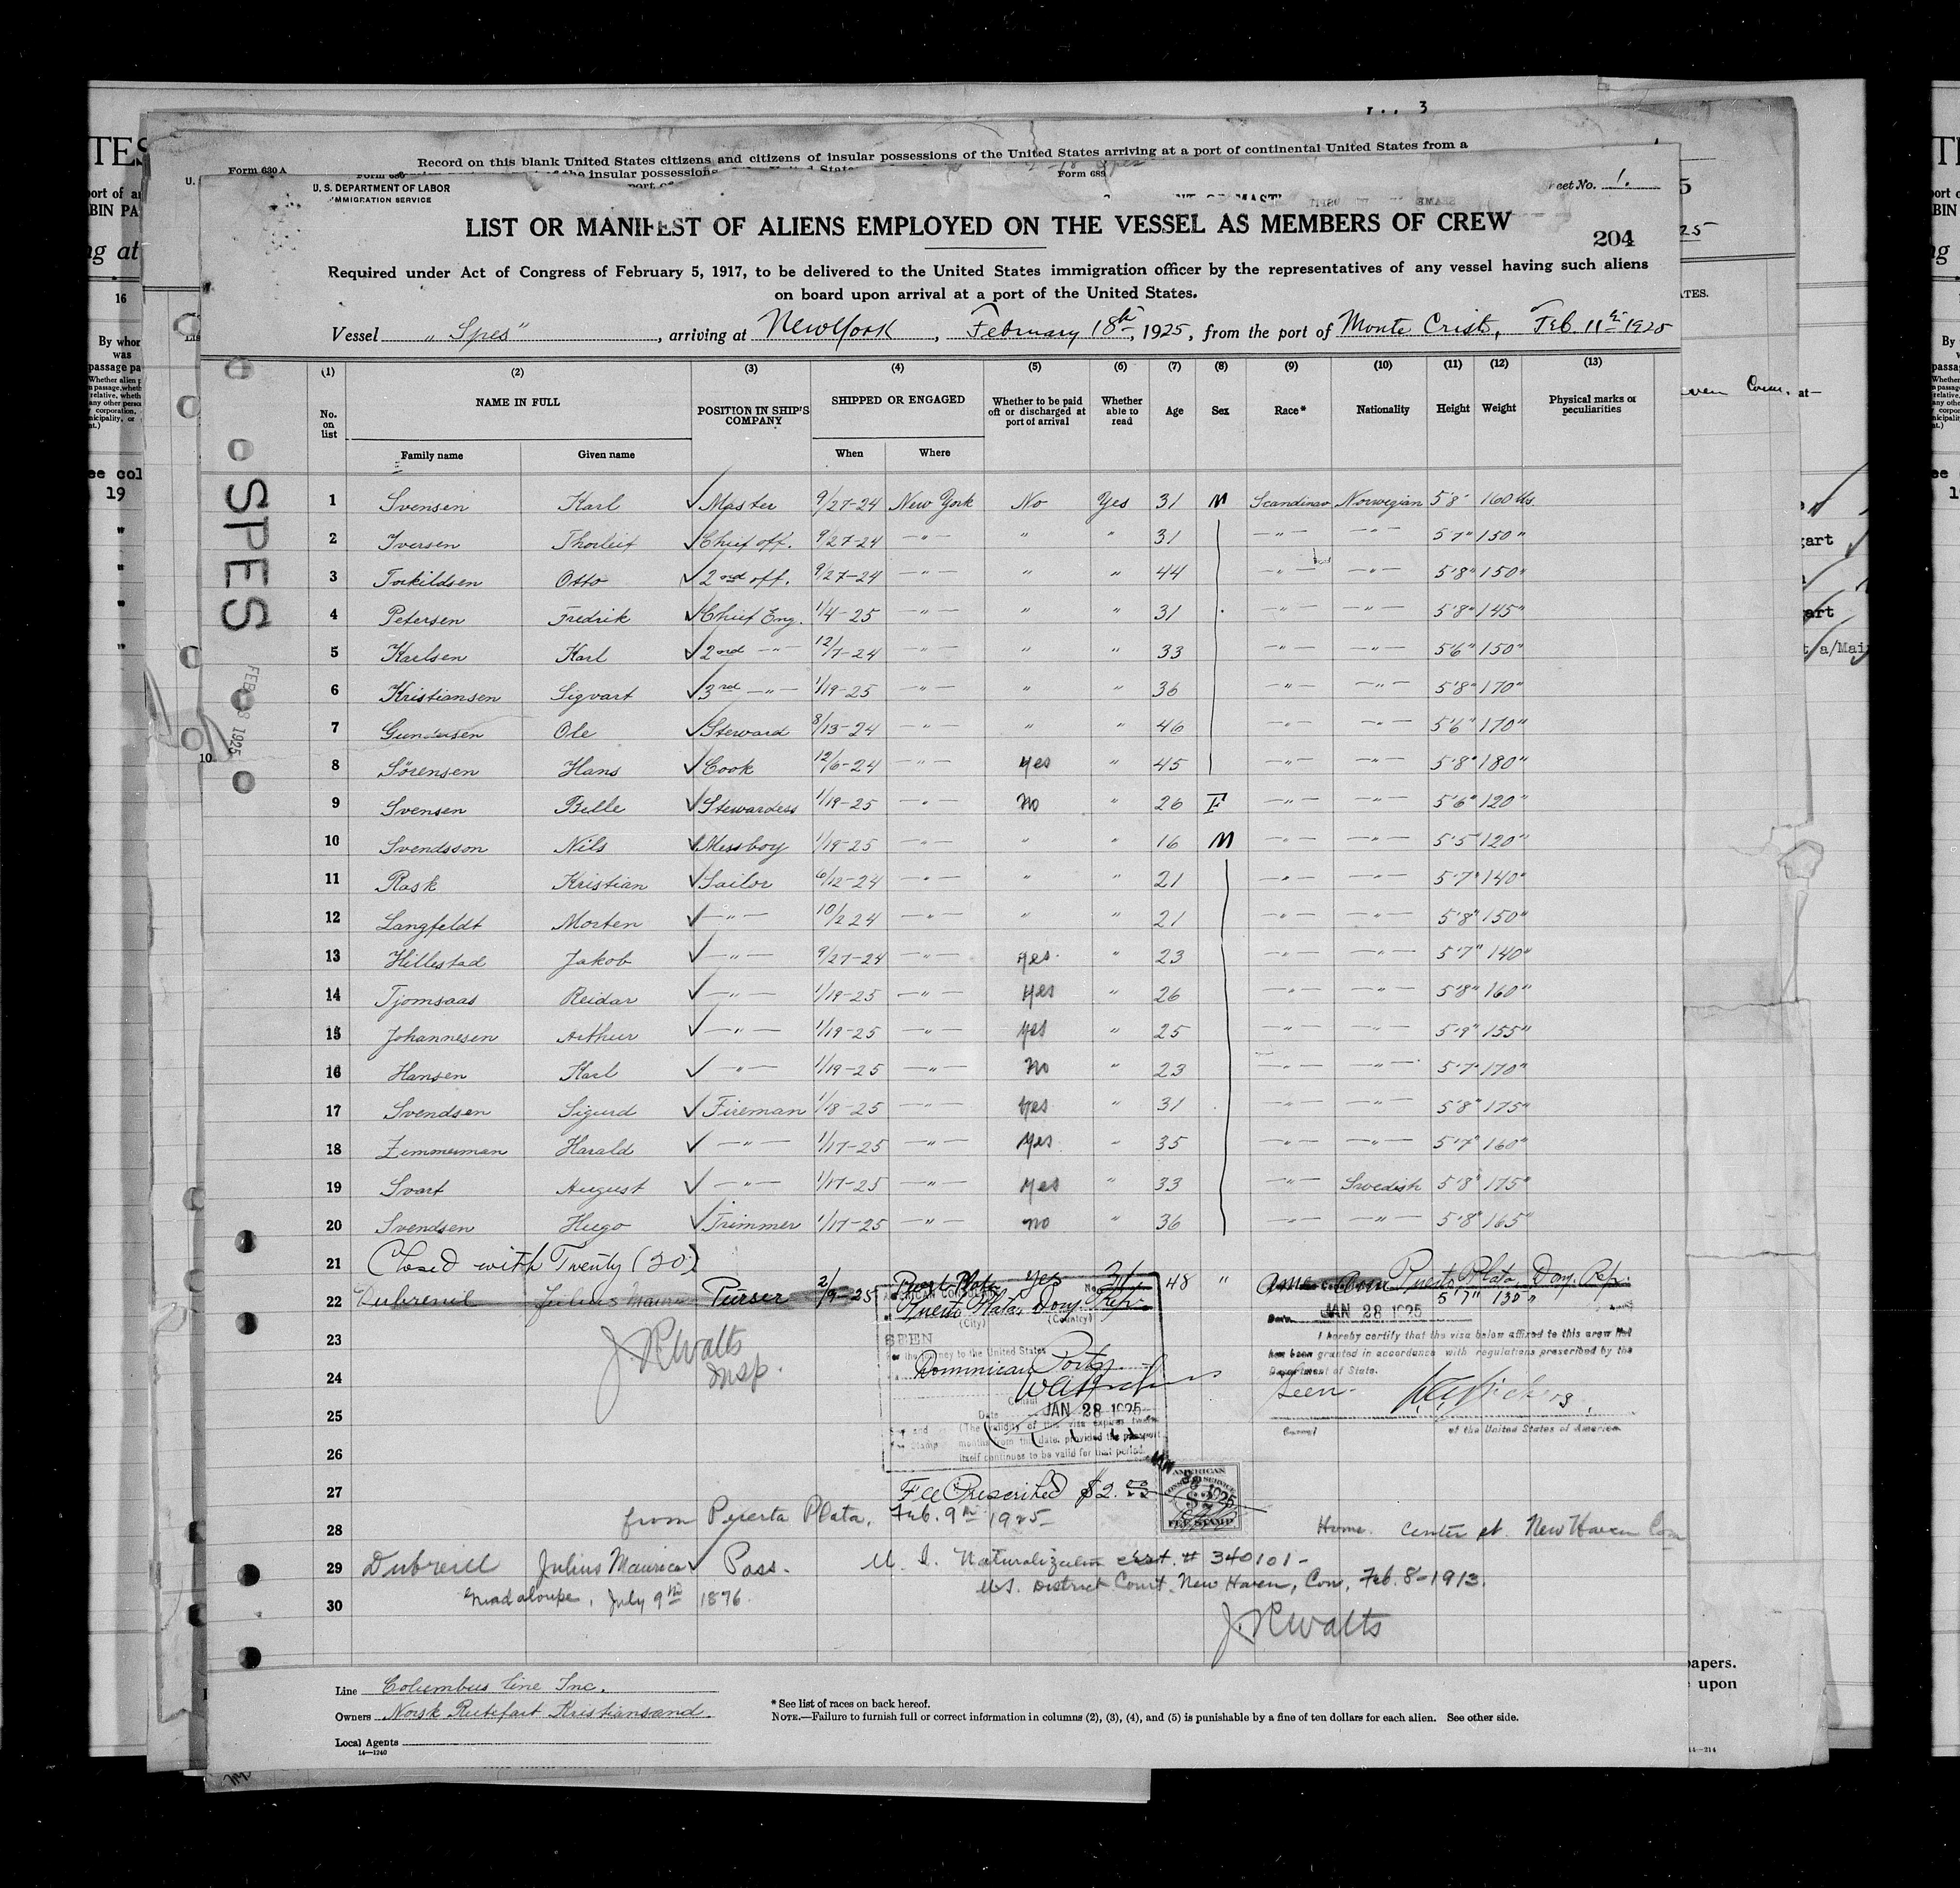 3
TES
port of
BIN PA
ng at
16
By whom
was
passage pa
19
Form 630 A
Record on this blank United States citizens and citizens of insular possessions of the United States arriving at a port of continental United States from a
Form 689
U. S. DEPARTMENT OF LABOR
IMMIGRATION SERVICE
eet No. 1.
LIST OR MANIFEST OF ALIENS EMPLOYED ON THE VESSEL AS MEMBERS OF CREW
204
Required under Act of Congress of February 5, 1917, to be delivered to the United States immigration officer by the representatives of any vessel having such aliens
on board upon arrival at a port of the United States.
Vessel „Spes“, arriving at New York, February 18th, 1925, from the port of Monte Cristi, Feb. 11th 1925
(1) (2) (3) (4) (5) (6) (7) (8) (9) (10) (11) (12) (13)
No. on list NAME IN FULL POSITION IN SHIP'S COMPANY SHIPPED OR ENGAGED Whether to be paid off or discharged at port of arrival Whether able to read Age Sex Race* Nationality Height Weight Physical marks or peculiarities
Family name Given name When Where
SPES
FEB 18 1925
1 Svensen Karl ✓ Master 9/27-24 New York No Yes 31 M Scandinav Norwegian 5'8" 160 lbs.
2 Iversen Thorleif ✓ Chief off. 9/27-24 —"— " " 31 —"— —"— 5'7" 150"
3 Torkildsen Otto ✓ 2nd off. 9/27-24 —"— " " 44 —"— —"— 5'8" 150"
4 Petersen Fredrik ✓ Chief Eng. 1/4-25 —"— " " 31 —"— —"— 5'8" 145"
5 Karlsen Karl ✓ 2nd —"— 12/7-24 —"— " " 33 —"— —"— 5'6" 150"
6 Kristiansen Sigvart ✓ 3rd —"— 1/19-25 —"— " " 36 —"— —"— 5'8" 170"
7 Gundersen Ole ✓ Steward 8/13-24 —"— " " 46 —"— —"— 5'6" 170"
8 Sørensen Hans ✓ Cook 12/6-24 —"— yes " 45 —"— —"— 5'8" 180"
9 Svensen Belle ✓ Stewardess 1/19-25 —"— no " 26 F —"— —"— 5'6" 120"
10 Svendsson Nils ✓ Messboy 1/19-25 —"— " " 16 M —"— —"— 5'5" 120"
11 Rask Kristian ✓ Sailor 6/12-24 —"— " " 21 —"— —"— 5'7" 140"
12 Langfeldt Morten ✓ —"— 10/2 24 —"— " " 21 —"— —"— 5'8" 150"
13 Hillestad Jakob ✓ —"— 9/27-24 —"— yes. " 23 —"— —"— 5'7" 140"
14 Tjomsaas Reidar ✓ —"— 1/19-25 —"— yes " 26 —"— —"— 5'8" 160"
15 Johannesen Arthur ✓ —"— 1/19-25 —"— yes " 25 —"— —"— 5'9" 155"
16 Hansen Karl ✓ —"— 1/19-25 —"— no " 23 —"— —"— 5'7" 170"
17 Svendsen Sigurd ✓ Fireman 1/18-25 —"— yes " 31 —"— —"— 5'8" 175"
18 Zimmerman Harald ✓ —"— 1/17-25 —"— yes " 35 —"— —"— 5'7" 160"
19 Svart August ✓ —"— 1/17-25 —"— yes " 33 —"— Swedish 5'8" 175"
20 Svendsen Hugo ✓ Trimmer 1/17-25 —"— no " 36 —"— —"— 5'8" 165"
21 Closed with Twenty (20)
22 Dubreuil Julius Maurice Purser 2/9-25 Puerto Plata yes 48 " Puerto Plata, Dom. Rep.
Puerto Plata, Dom. Rep. 5'7" 135"
(City) (Country)
Date JAN 28 1925
23 J. R. Walts
Insp.
SEEN
For the journey to the United States
I hereby certify that the visa below affixed to this crew list
has been granted in accordance with regulations prescribed by the
Department of State.
24 Dominican Ports.
Seen.
25
Date JAN 28 1925
(The validity of this visa expires twelve
months from this date, provided the passport
itself continues to be valid for that period.
of the United States of America.
26
27 Fee Prescribed $2.00
AMERICAN
CONSULAR SERVICE
$2
FEE STAMP
28 from Puerta Plata, Feb. 9th 1925
Home. Center st. New Haven Con
29 Dubreill Julius Maurice ✓ Pass. U. S. Naturalization cert. # 340101-
U.S. District Court, New Haven, Con, Feb. 8-1913.
Guadaloupe, July 9th 1876.
30
J. R. Walts
Line Columbus Line Inc.
Owners Norsk Rutefart Kristiansand.
Local Agents
14—1240
* See list of races on back hereof.
NOTE.—Failure to furnish full or correct information in columns (2), (3), (4), and (5) is punishable by a fine of ten dollars for each alien. See other side.
papers.
upon
14—214